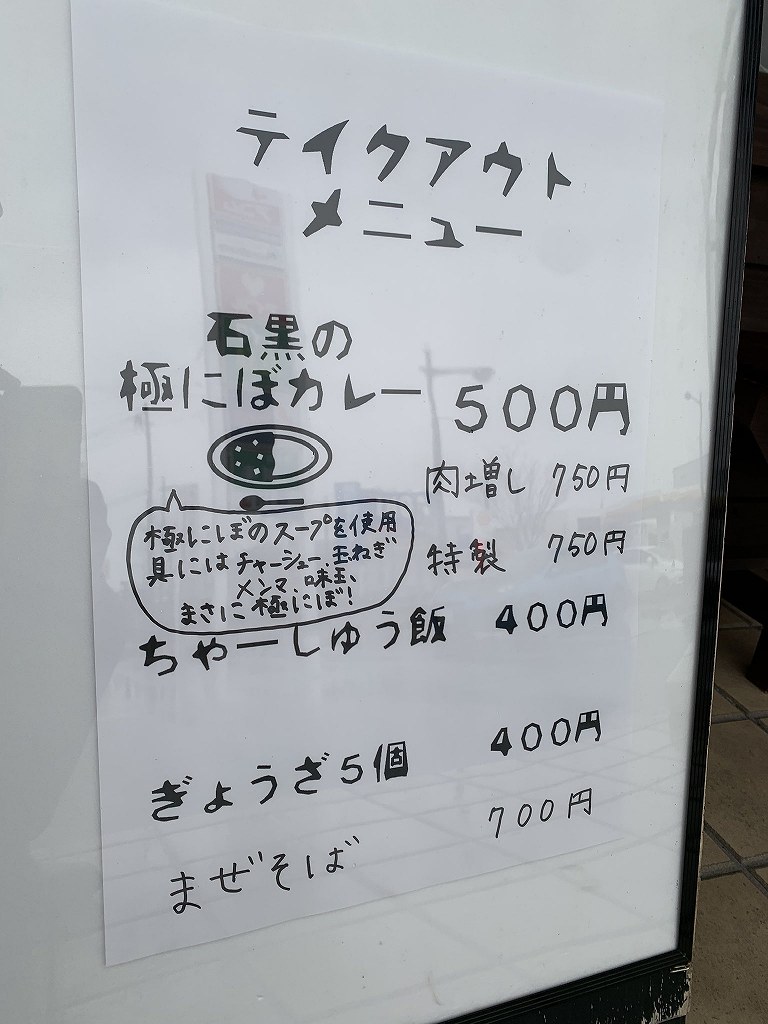 テイクアウト
メニュー
石黒の
極にぼカレー 500円
肉増し 750円
特製 750円
極にぼのスープを使用
具にはチャーシュー、玉ねぎ
メンマ、味玉、
まさに極にぼ!
ちゃーしゅう飯 400円
ぎょうざ5個 400円
まぜそば 700円